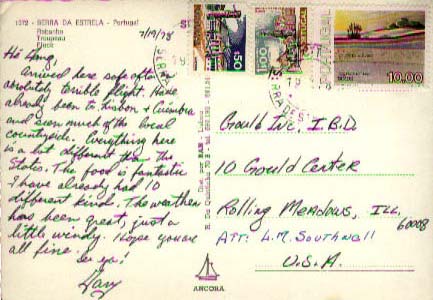 1072 - SERRA DA ESTRELA - Portugal
Rebanho
Troupeau
Flock
7/19/78
Hi Gang!
Arrived here safe after
absolutely terrible flight. Have
already been to Lisbon & Coimbra
and seen much of the local
countryside. Everything here
is a lot different than the
States. The food is fantastic
I have already had 10
different kinds. The weather
has been great, just a
little windy. Hope you are
all fine.
See ya!
Gary
ANCORA
$50
1$00
PORTUGAL
10.00
Gould Inc. I.B.D
10 Gould Center
Rolling Meadows, ILL.
60008
ATT: L.M. Southwell
U.S.A.